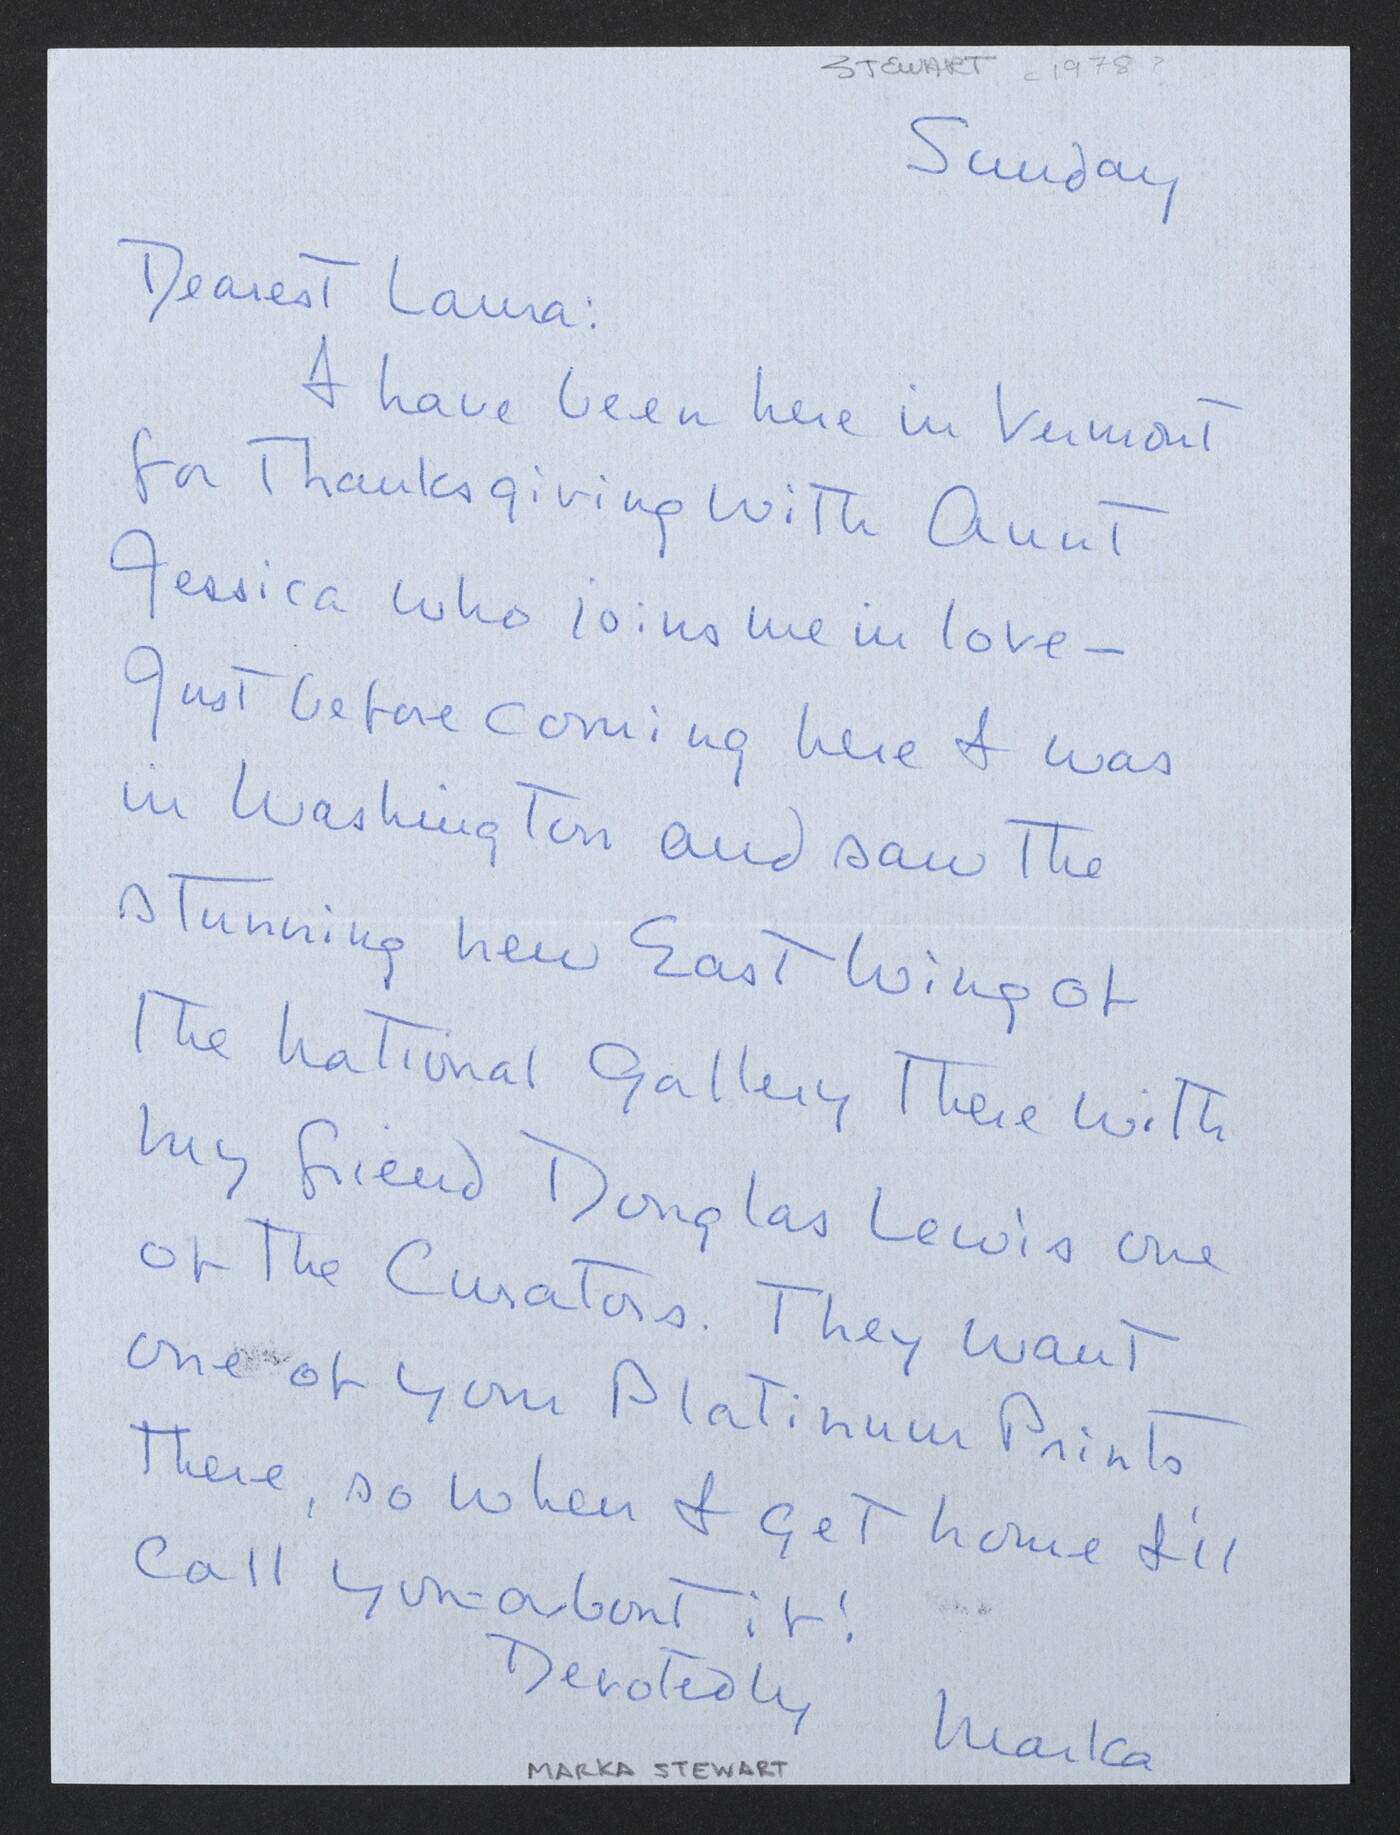 STEWART c1978?
Sunday
Dearest Laura:
I have been here in Vermont
for Thanksgiving with Aunt
Jessica who joins me in love –
Just before coming here I was
in Washington and saw the
stunning new East Wing of
the National Gallery there with
my friend Douglas Lewis one
of the Curators. They want
one of your Platinum Prints
there, so when I get home I'll
call you about it!
Devotedly Marka
MARKA STEWART